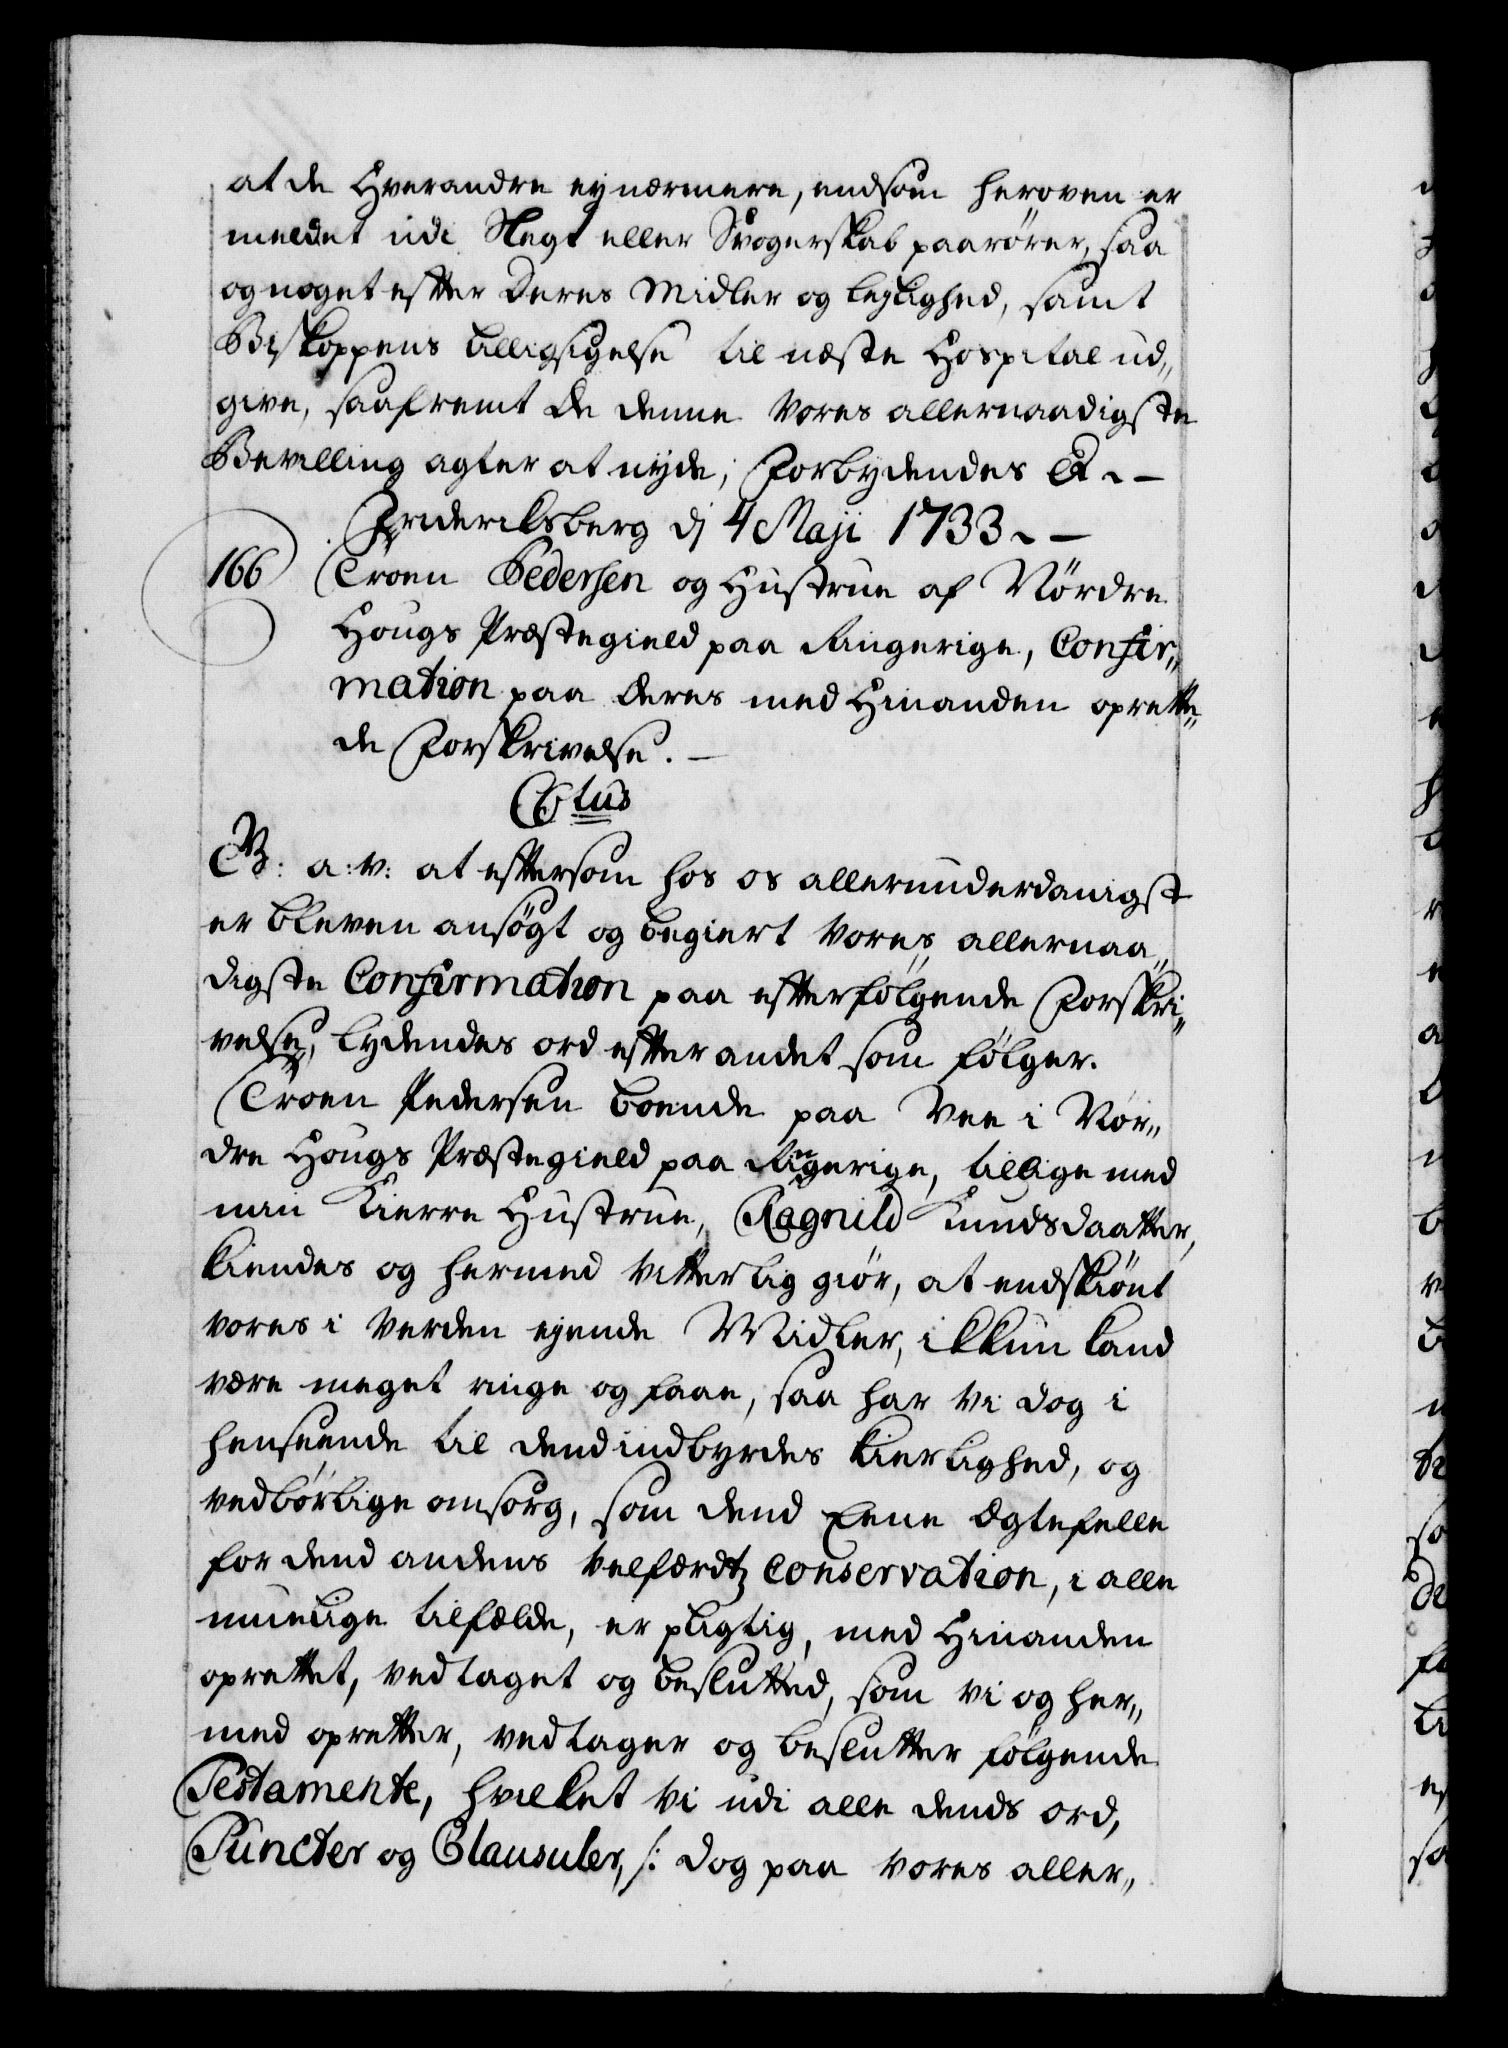 at de Hverandre ey nærmere, end som heroven er
meldet udi Slegt eller Svogerskab paarörer, saa
og noget efter deres Midler og leylighed, samt
Biskoppens billigsigelse til næste Hospital ud„
give, saafremt de denne Vores allernaadigste
Bevilling agter at nyde; Forbydendes &. –
Frideriksberg dj 4 Maji 1733. –
166
Troen Pedersen og Hustrue af Nördre
Hougs Præstegield paa Ringerige, Confir„
mation paa deres med Hinanden oprette„
de Forskrivelse. –
C6tus
G: a: v: at eftersom hos os allerunderdanigst
er bleven ansögt og begiert Vores allernaa„
digste Confirmation paa efterfölgende Forskri„
velse, lydendes ord efter andet som fölger.
Troen Pedersen boende paa Vee i Nör„
dre Hougs Præstegield paa Ringerige, tillige med
min Kierre Hustrue, Ragnild Knudsdaatter,
kiendes og hermed vitterlig giör, at endskiönt
vores i Verden ejende Midler, ikkun kand
være meget ringe og faae, saa har vi dog i
henseende til dend indbyrdes kierlighed, og
vedbörlige omsorg, som dend Eene Ægtefelle
for dend andens velfærdtz Conservation, i alle
muelige tilfælde, er pligtig, med Hinanden
oprettet, vedtaget og beslutted, som vi og her„
med opretter, vedtager og beslutter fölgende
Testamente, hvilket vi udi alle dends ord,
Puncter og Clausuler, /: dog paa vores aller„